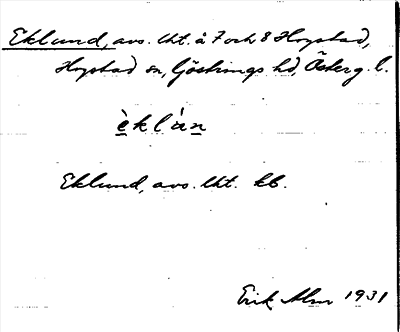 Eklund, avs. lht. å 7 och 8 Hogstad,
Hogstad sn, Göstrings hd, Österg. l.
èklán
Eklund, avs. lht. kb.
Erik Alm 1931